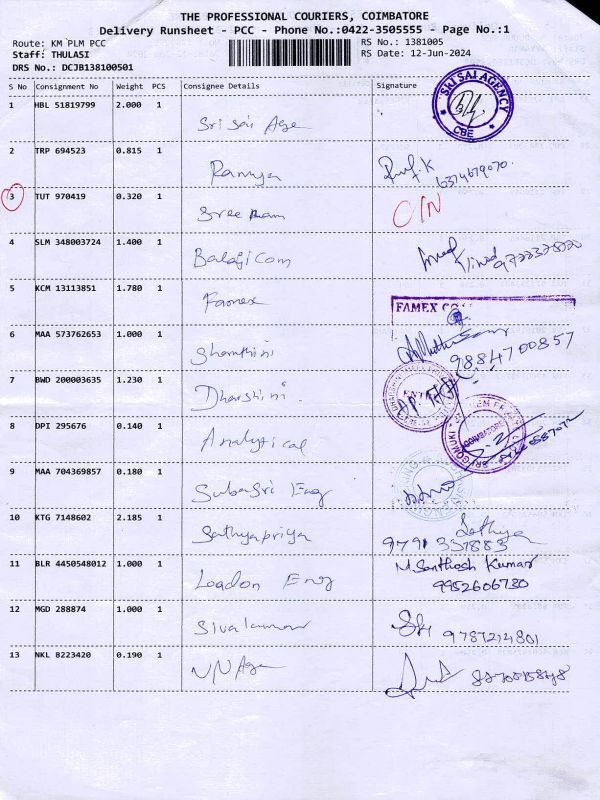 THE PROFESSIONAL COURIERS, COIMBATORE
Delivery Runsheet - PCC - Phone No.:0422-3505555 - Page No.:1
Route: KM PLM PCC
RS No.: 1381005
Staff: THULASI
RS Date: 12-Jun-2024
DRS No.: DCJB138100501
S No Consignment No Weight PCS Consignee Details Signature
SRI SAI AGENCY
CBE
1 HBL 51819799 2.000 1
Sri Sai Age
2 TRP 694523 0.815 1
Ramya
3 TUT 970419 0.320 1
Sree Ram
C/N
4 SLM 348003724 1.400 1
Balaji Com
5 KCM 13113851 1.780 1
Famex
FAMEX
6 MAA 573762653 1.000 1
Shanthini
9884700857
7 BWD 200003635 1.230 1
Dharshini
8 DPI 295676 0.140 1
Analytical
COIMBATORE
9 MAA 704369857 0.180 1
Subasri Eng
10 KTG 7148602 2.185 1
Sathyapriya
Sathya
9791 331883
11 BLR 4450548012 1.000 1
London Eng
M. Santhosh Kumar
9952606730
12 MGD 288874 1.000 1
Sivakumar
9787214801
13 NKL 8223420 0.190 1
VN Age